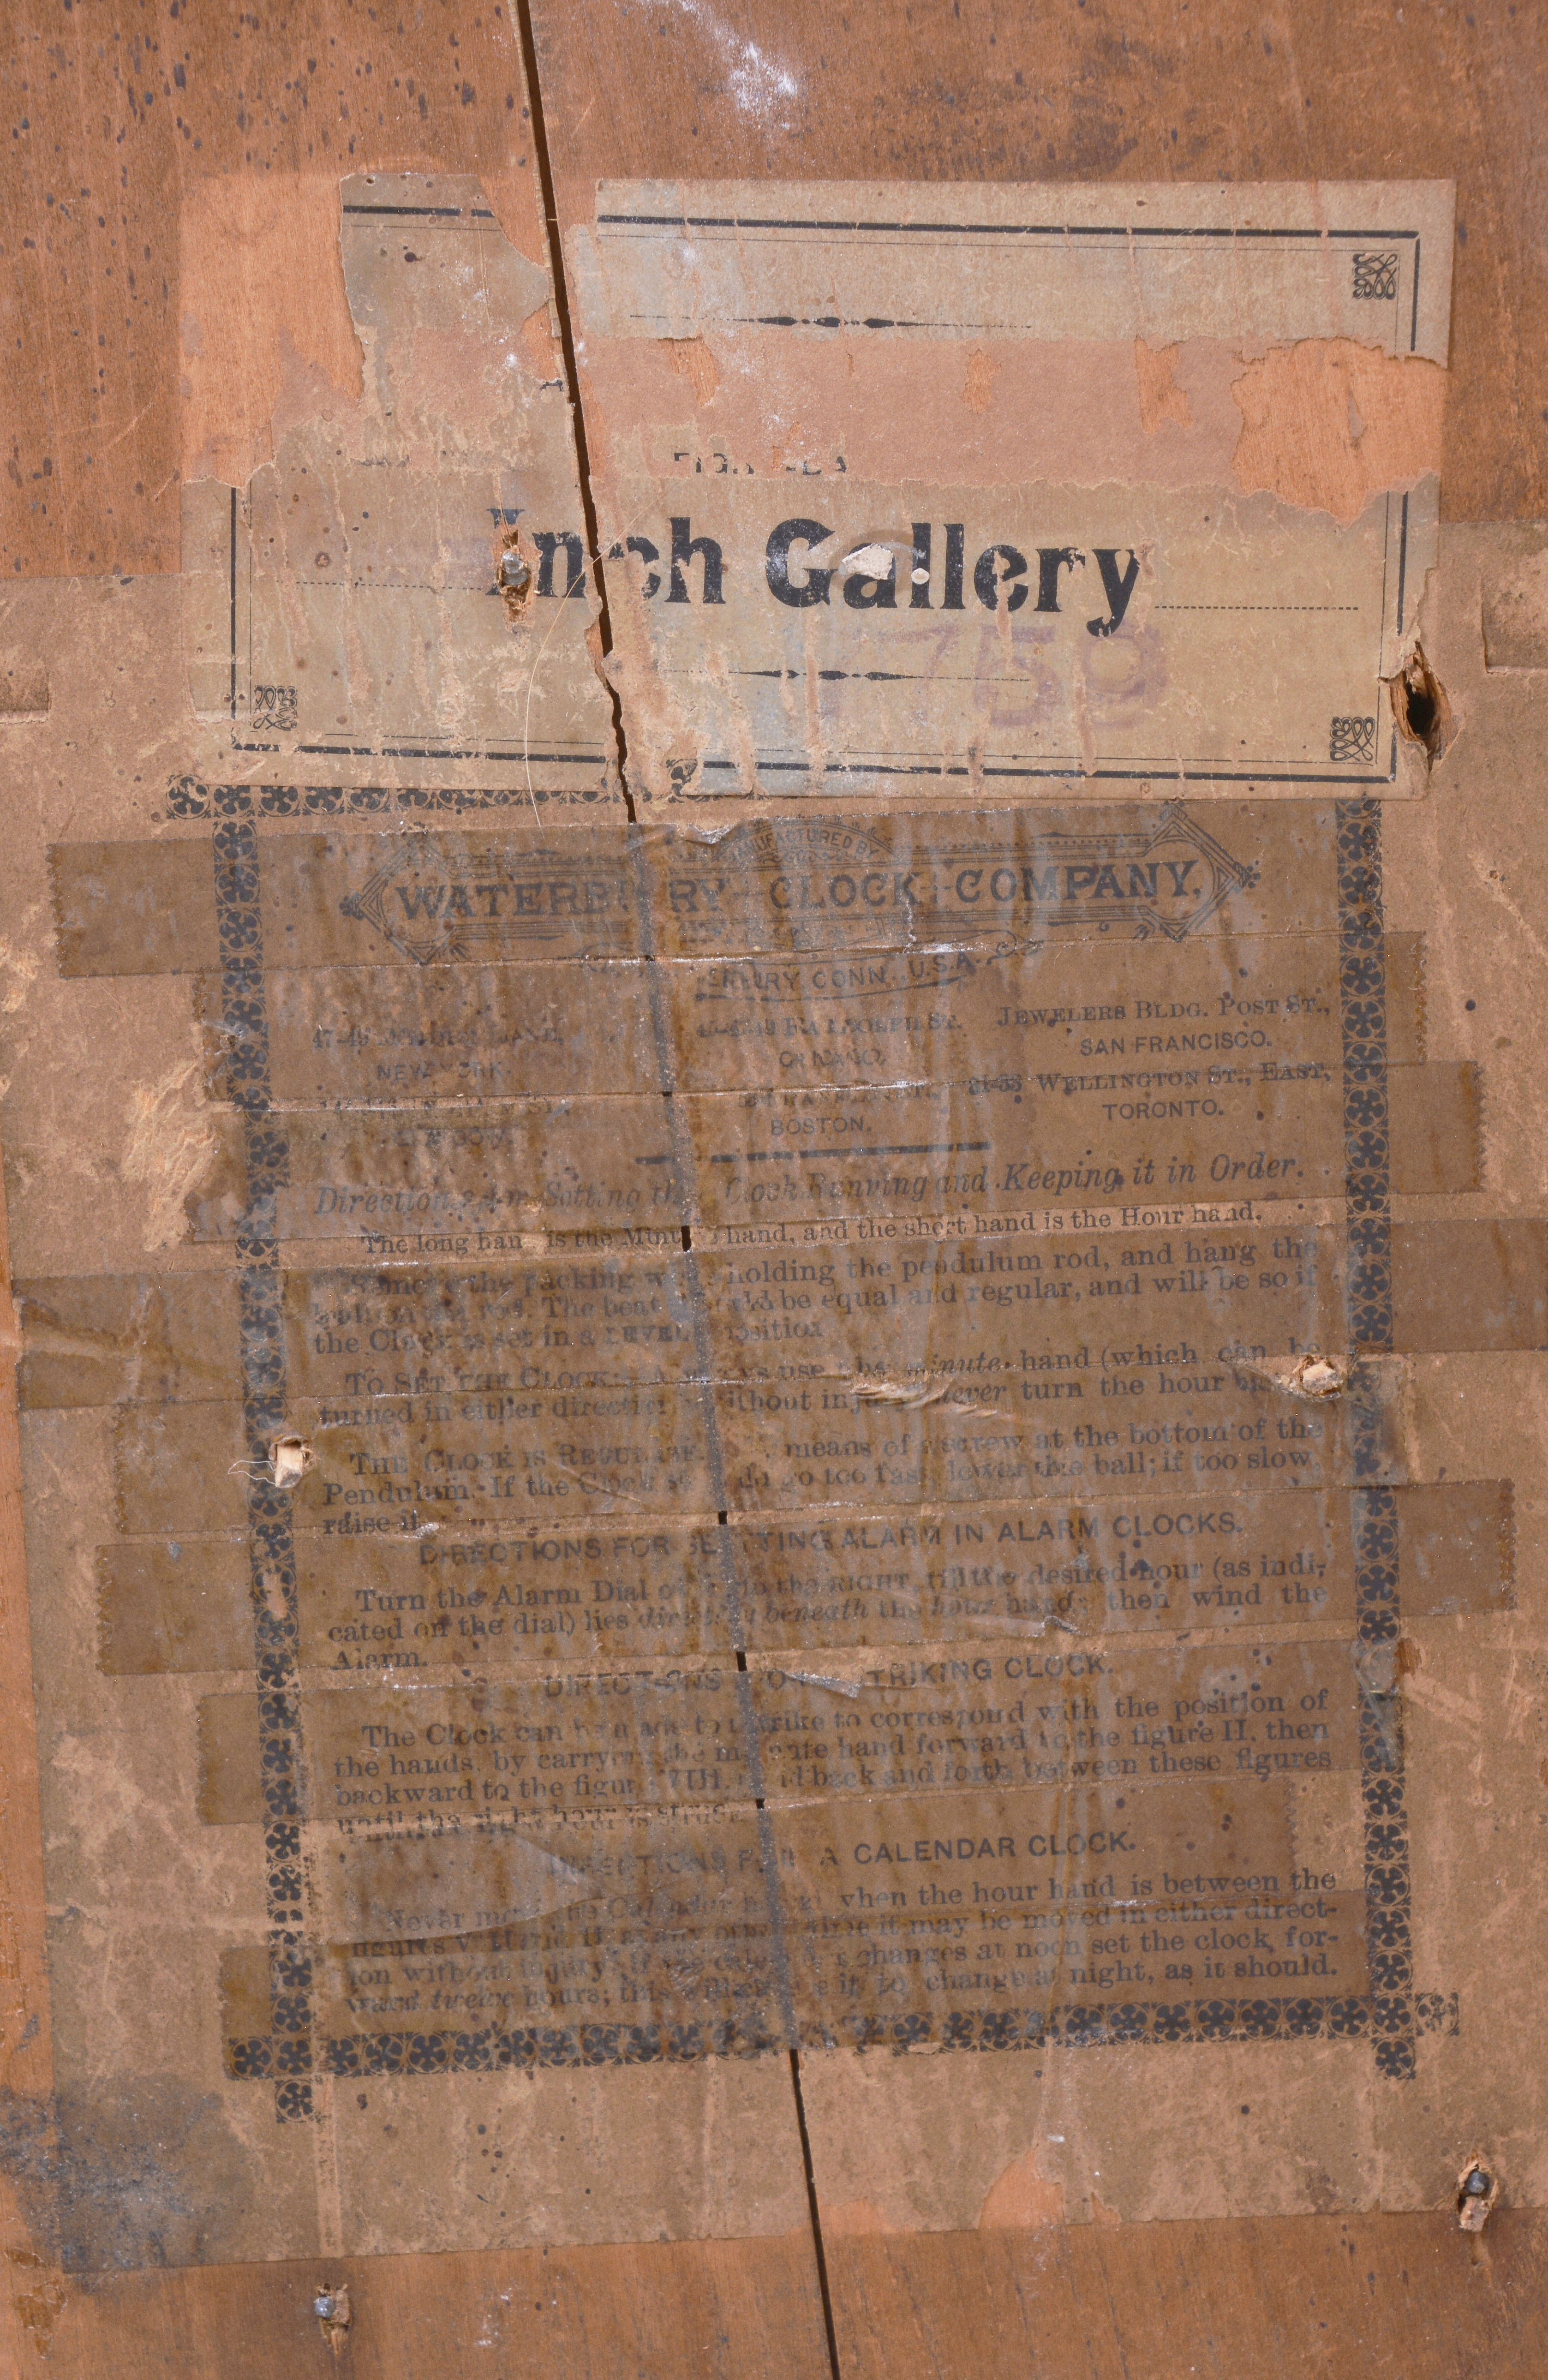 Inch Gallery
759
MANUFACTURED BY
WATERBURY CLOCK COMPANY,
CONN. U.S.A.
47-49 LANE,
NEW YORK.
ST.
CHICAGO.
JEWELERS BLDG. POST ST.,
SAN FRANCISCO.
BOSTON.
WELLINGTON ST., EAST,
TORONTO.
Directions for Setting the Clock Running and Keeping it in Order.
The long hand is the Minute hand, and the short hand is the Hour hand.
the packing holding the pendulum rod, and hang the
The beat should be equal and regular, and will be so if
the Clock is set in a LEVEL position
TO SET THE CLOCK: use the minute hand (which can be
turned in either direction without injury never turn the hour
THE CLOCK IS REGULATED means of a screw at the bottom of the
Pendulum. If the Clock should go too fast lower the ball; if too slow,
raise it.
DIRECTIONS FOR SETTING ALARM IN ALARM CLOCKS.
Turn the Alarm Dial to the RIGHT, till the desired hour (as indi-
cated on the dial) lies directly beneath the hour hand; then wind the
Alarm.
DIRECTIONS FOR STRIKING CLOCK.
The Clock can be made to strike to correspond with the position of
the hands, by carrying the minute hand forward to the figure II. then
backward to the figure VIII. and back and forth between these figures
until the right hour is struck
DIRECTIONS FOR A CALENDAR CLOCK.
Never move the Calendar when the hour hand is between the
figures it may be moved in either direct-
ion without injury. If the changes at noon set the clock for-
ward twelve hours; this will it to change at night, as it should.